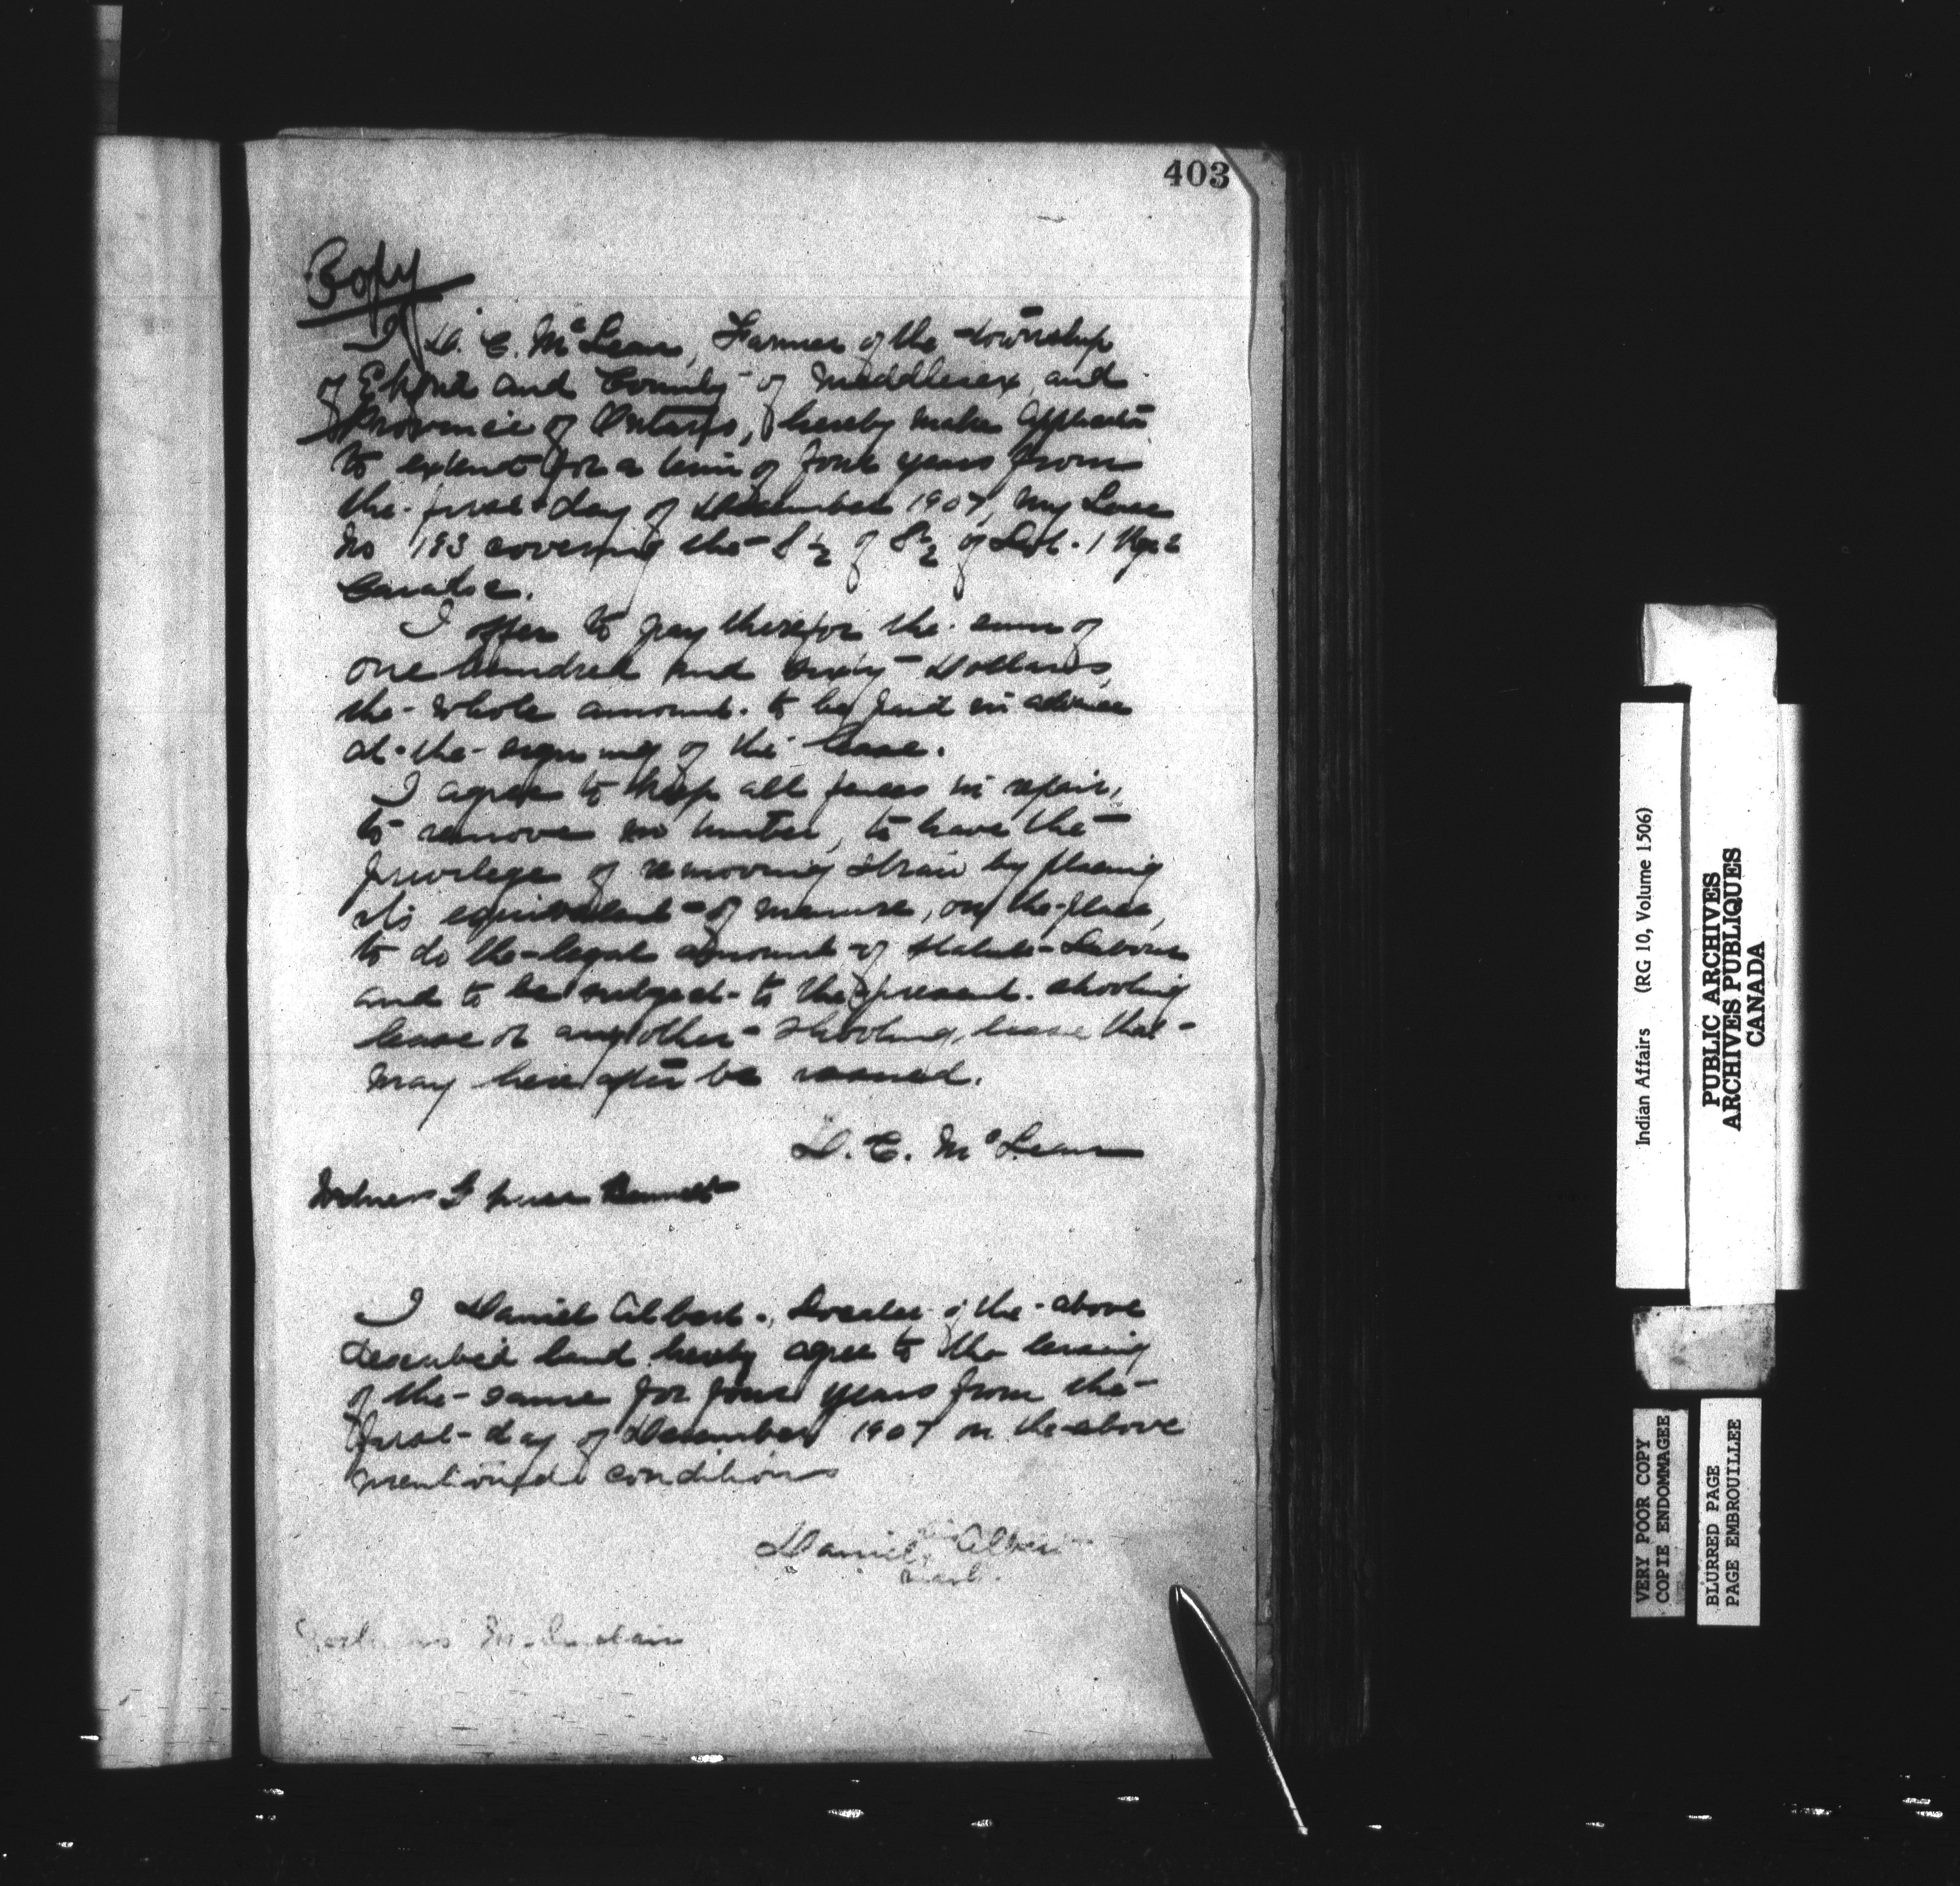 403
Copy
I D. C. McLean, Farmer of the township
of Ekfrid and County of Middlesex and
Province of Ontario, hereby make application
to extend for a term of four years from
the first day of December 1907, my Lease
No 193 covering the S ½ of S ½ of Lot 1 Rge 2
Caradoc.
I offer to pay therefor the sum of
one hundred and sixty Dollars,
the whole amount to be paid in advance
at the signing of the lease.
I agree to keep all fences in repair,
to remove no timber, to have the
privilege of removing straw by placing
its equivalent of manure, on the place,
to do the legal amount of Statute Labour
and to be subject to the present shooting
lease or any other shooting lease that
may hereafter be issued.
D. C. McLean
Witness
I Daniel Albert, Locatee of the above
described land hereby agree to the leasing
of the same for four years from the
first day of December 1907 on the above
mentioned conditions
Daniel Albert
mark
Indian Affairs (RG 10, Volume 1506)
PUBLIC ARCHIVES
ARCHIVES PUBLIQUES
CANADA
VERY POOR COPY
COPIE ENDOMMAGEE
BLURRED PAGE
PAGE EMBROUILLEE